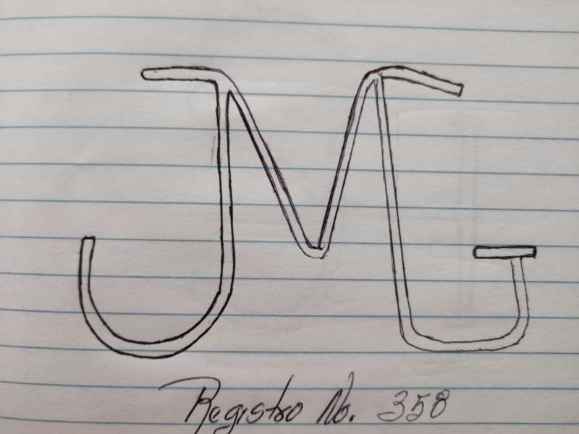 JMG
Registro No. 358